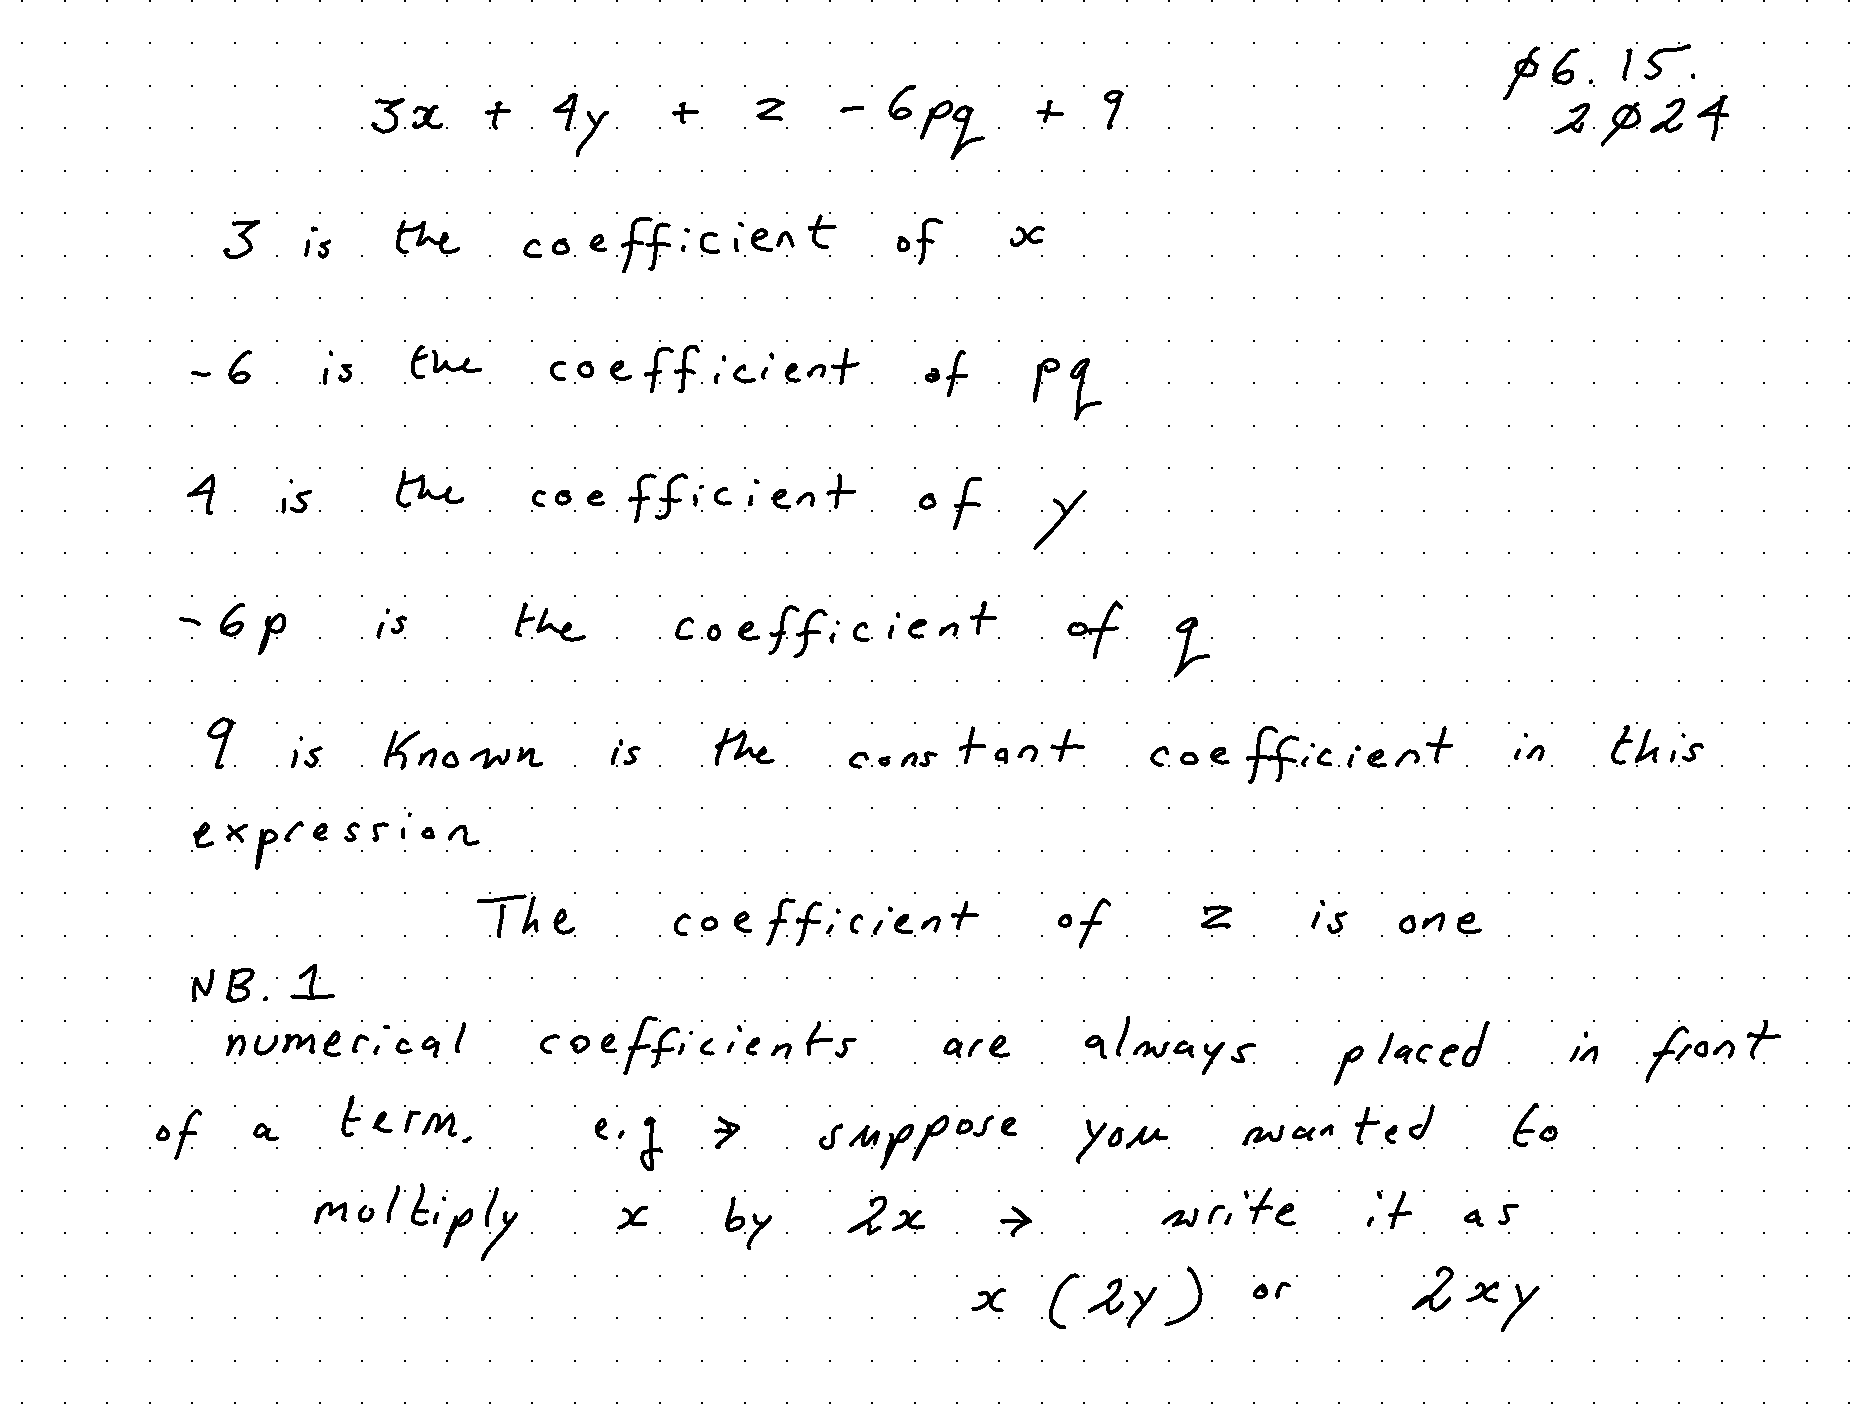 06.15.
2024
3x + 4y + z - 6pq + 9
3 is the coefficient of x
-6 is the coefficient of pq
4 is the coefficient of y
-6p is the coefficient of q
9 is Known is the constant coefficient in this
expression
The coefficient of z is one
NB. 1
numerical coefficients are always placed in front
of a term. e.g → suppose you wanted to
moltiply x by 2x → write it as
x (2y) or 2xy